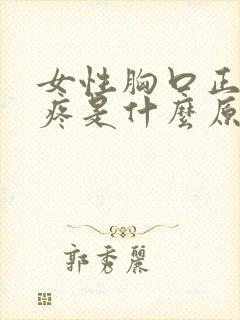 女性胸口正
疼是什麼原
郭秀麗